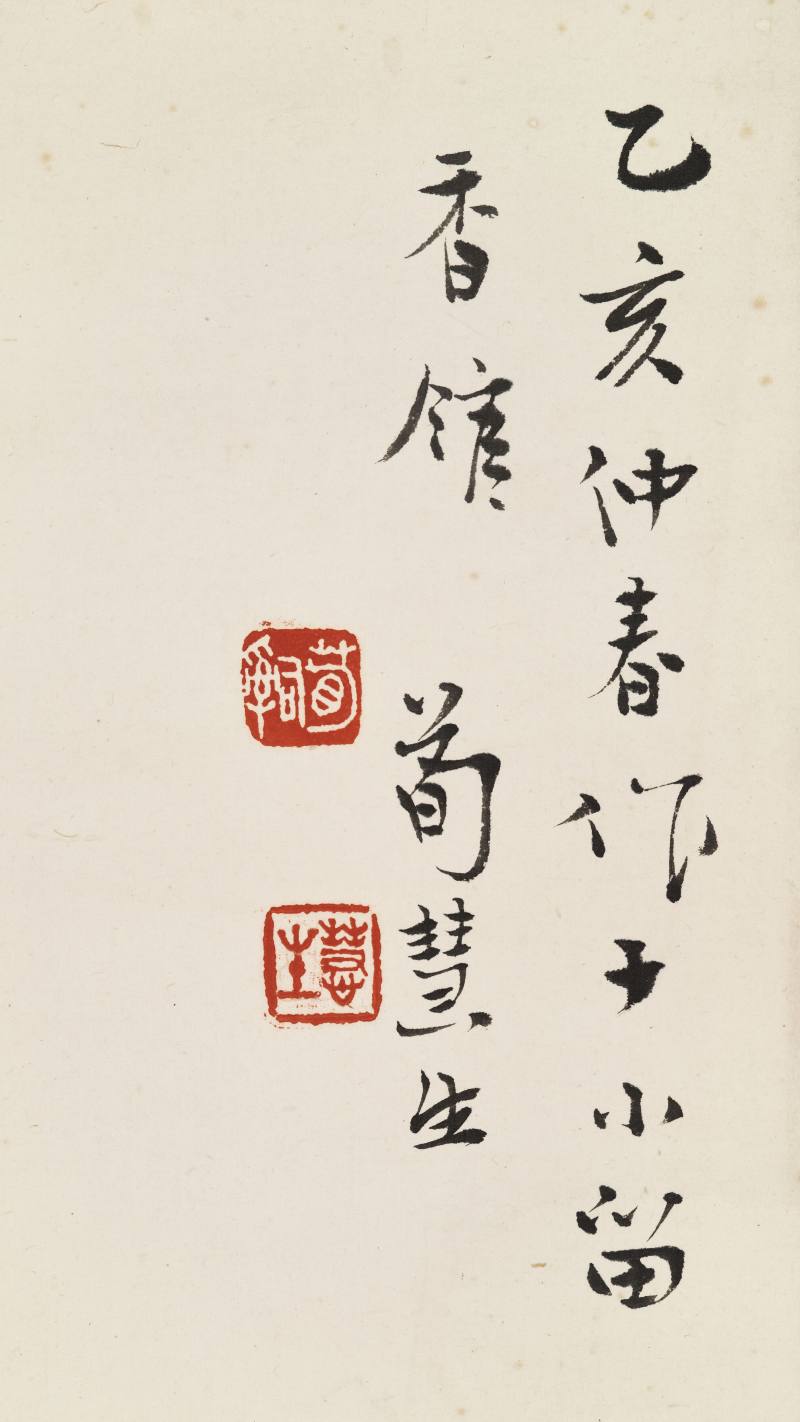 乙亥仲春作于小留
香館 荀慧生
慧生